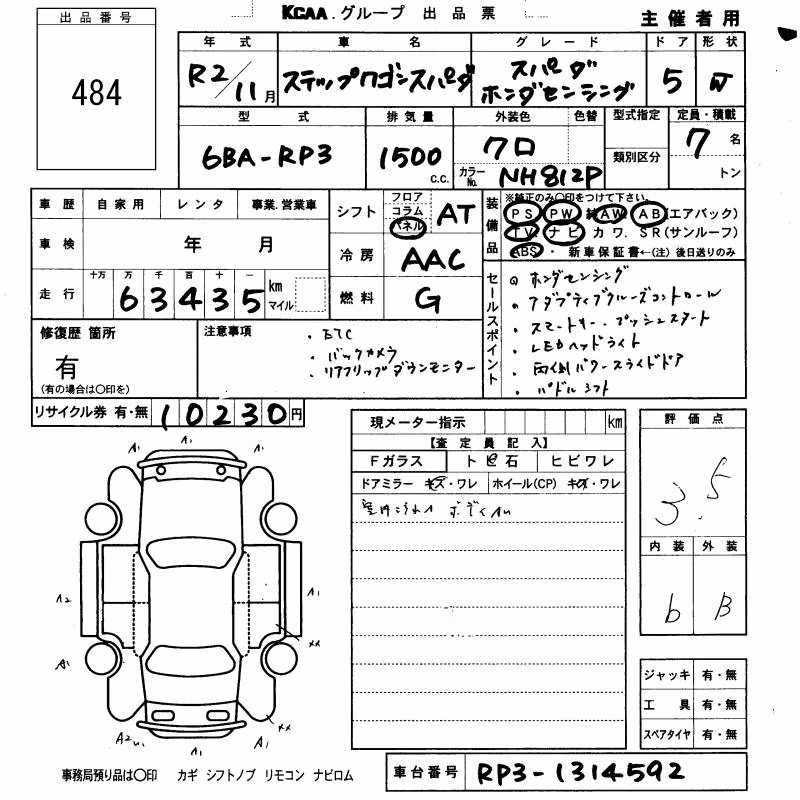 出品番号
KCAA.グループ 出品票
主催者用
484
年式 車名 グレード ドア 形状
R2/11月 ステップワゴンスパーダ スパーダ ホンダセンシング 5 W
型式 排気量 外装色 色替 型式指定 定員・積載
6BA-RP3 1500 c.c. クロ 類別区分 7名
カラーNo. NH812P トン
車歴 自家用 レンタ 事業.営業車
車検 年 月
走行 十万 万 千 百 十 一
63435 km マイル
シフト フロア コラム パネル AT
冷房 AAC
燃料 G
装備品 ※純正のみ○印をつけて下さい。
PS PW AW AB(エアバック)
TV ナビ カワ. SR(サンルーフ)
ABS ・ 新車保証書←(注)後日送りのみ
セールスポイント
ホンダセンシング
・アダプティブクルーズコントロール
・スマートキー.プッシュスタート
・LEDヘッドライト
・両側パワースライドドア
・パドルシフト
修復歴 箇所
有
(有の場合は○印を)
注意事項
・ETC
・バックカメラ
・リアフリップダウンモニター
リサイクル券 有・無 10230円
現メーター指示 km
【査定員記入】
Fガラス トビ石 ヒビワレ
ドアミラー キズ・ワレ ホイール(CP) キズ・ワレ
評価点
3.5
内装 外装
b B
A1 A1 A1
A2 A1
XX
A1
XX
A2 A1 A1
ジャッキ 有・無
工具 有・無
スペアタイヤ 有・無
事務局預り品は○印 カギ シフトノブ リモコン ナビロム
車台番号 RP3-1314592